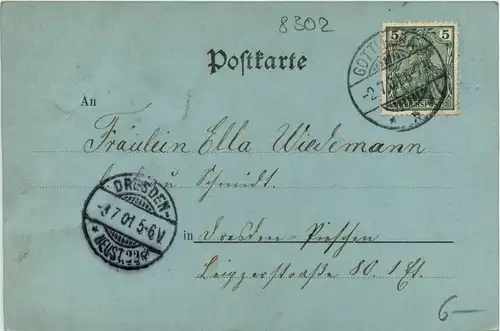 8302
Postkarte
5 5
GOTTL
-2.7.01
An
Fräulein Ella Wiedemann
Schmidt.
DRESDEN-
-3.7.01 5-6V.
* NEUST.
in Dresden-Pieschen
Leipzigerstraße 80. I Et.
6-